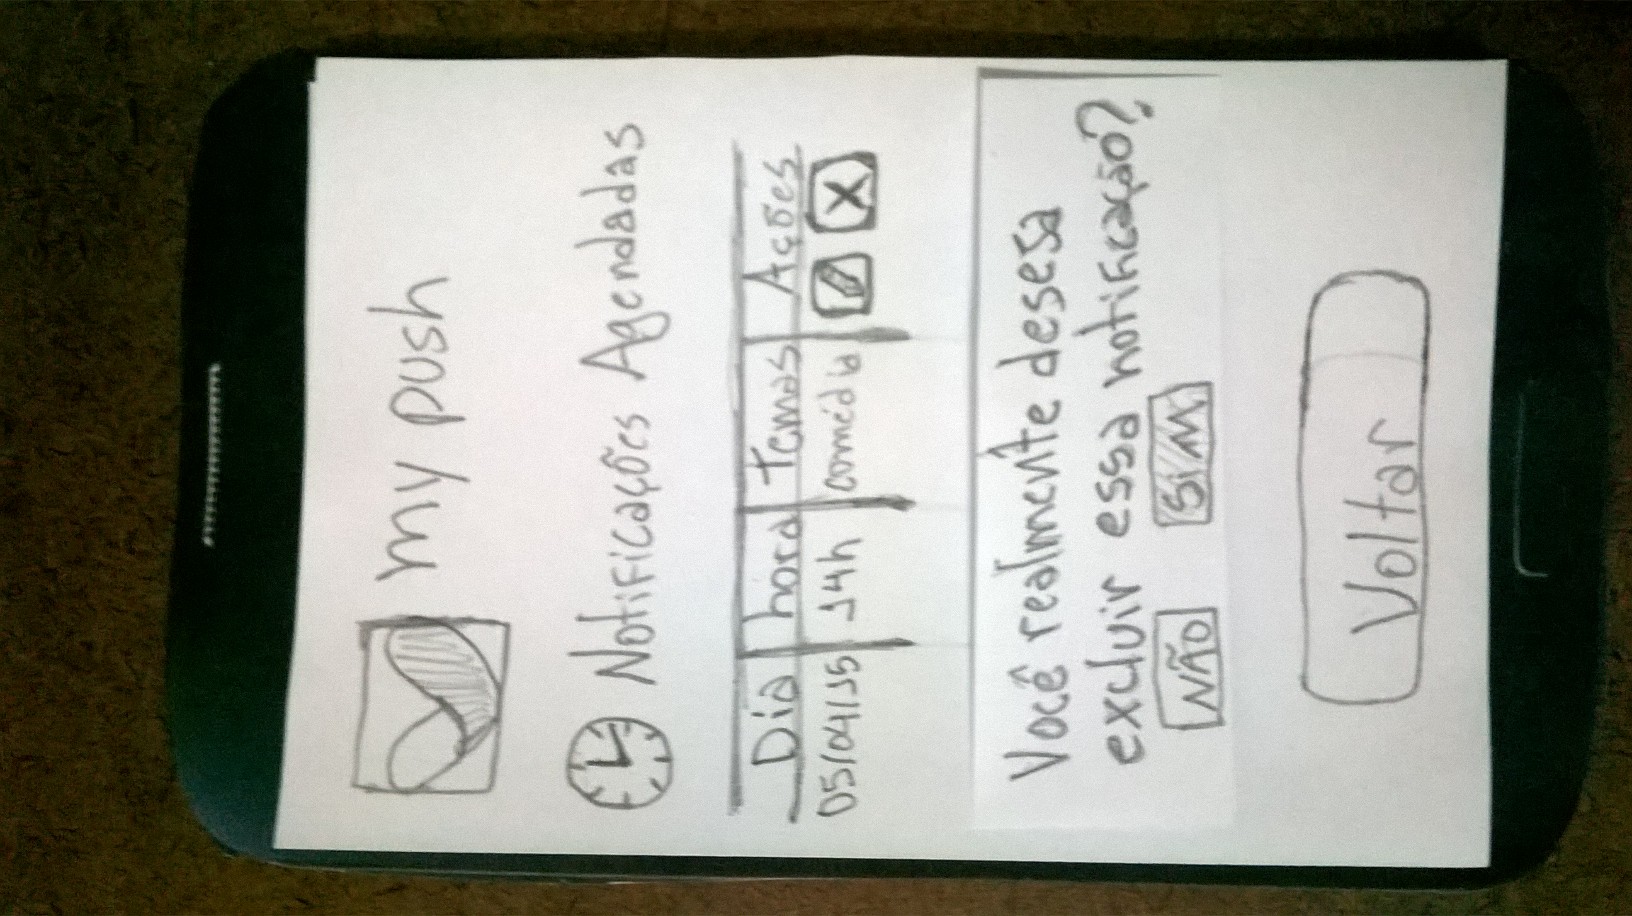 my push
Notificações Agendadas
Dia hora Temas Ações
05/04/15 14h comédia X
Você realmente deseja
excluir essa notificação?
NÃO SiM
Voltar